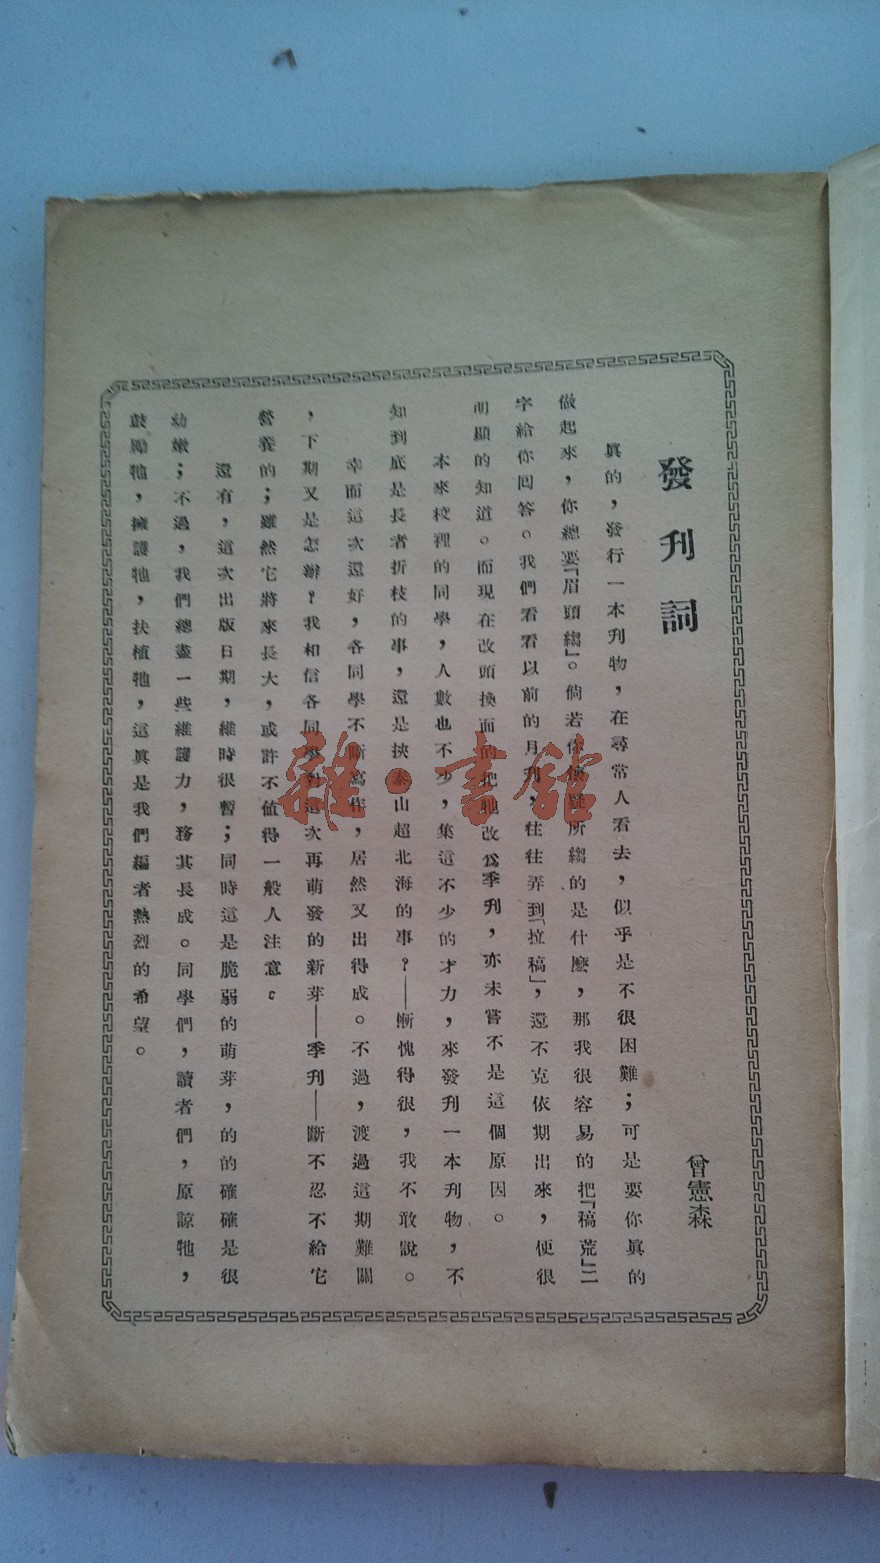 發刊詞
曾憲森
眞的，發行一本刋物，在尋常人看去，似乎是不很困難；可是要你眞的
做起來，你總要「眉頭縐」。倘若你懷疑所縐的是什麽，那我很容易的把「稿荒」二
字給你回答。我們看看以前的月刋，往往弄到「拉稿」，還不克依期出來，便很
明顯的知道。而現在改頭換面的把牠改爲季刋，亦未嘗不是這個原因。
本來校裡的同學，人數也不少，集這不少的才力，來發刋一本刋物，不
知到底是長者折枝的事，還是挾泰山超北海的事？——慚愧得很，我不敢說。
幸而這次還好，各同學不斷寫作，居然又出得成。不過，渡過這期難關
，下期又是怎辦？我相信各同學對這次再萌發的新芽——季刋——斷不忍不給它
營養的；雖然它將來長大，或許不值得一般人注意。
還有，這次出版日期，維時很暫；同時這是脆弱的萌芽，的的確確是很
幼嫩；不過，我們總盡一些維護力，務其長成。同學們，讀者們，原諒牠，
鼓勵牠，擁護牠，扶植牠，這眞是我們編者熱烈的希望。
雜·書館